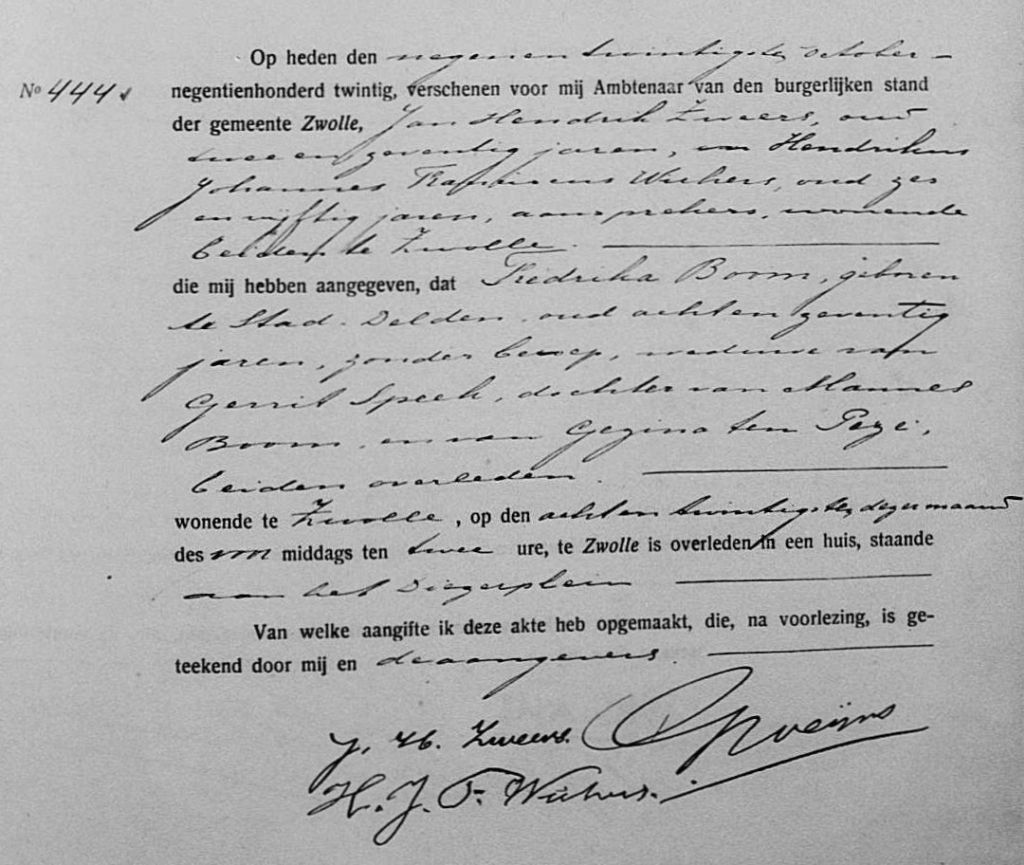 Op heden den negenentwintigsten october
No 444 negentienhonderd twintig, verschenen voor mij Ambtenaar van den burgerlijken stand
der gemeente Zwolle, Jan Hendrik Zweers, oud
twee en zeventig jaren, en Hendrikus
Johannes Franciscus Wichers, oud zes
en vijftig jaren, aansprekers, wonende
beiden te Zwolle.
die mij hebben aangegeven, dat Fredrika Boom, geboren
te Stad-Delden, oud acht en zeventig
jaren, zonder beroep, weduwe van
Gerrit Speek, dochter van Mannes
Boom, en van Gezina ten
beiden overleden.
wonende te Zwolle, op den achtentwintigsten dezer maand
des voor middags ten twee ure, te Zwolle is overleden in een huis, staande
aan het Diezerplein
Van welke aangifte ik deze akte heb opgemaakt, die, na voorlezing, is ge-
teekend door mij en de aangevers.
J. H. Zweers.
H. J. F. Wichers.